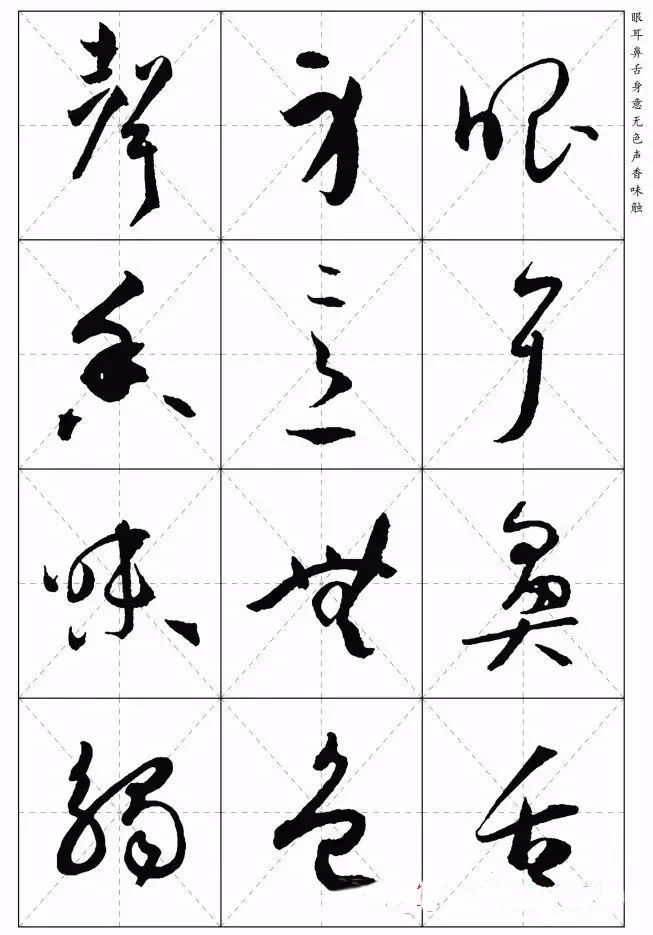 眼耳鼻舌
身意無色
聲香味觸
眼耳鼻舌身意无色声香味触